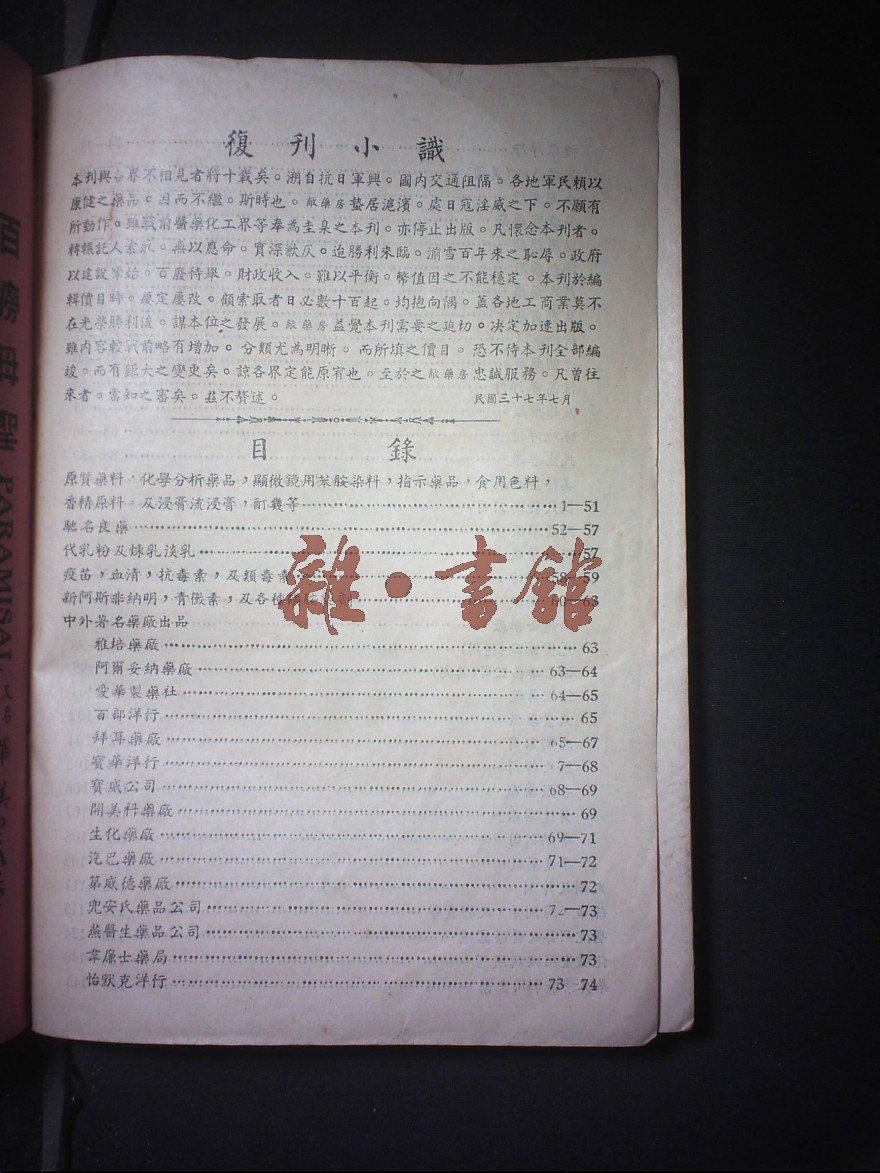 復刊小識
本刊與各界不相見者將十載矣。溯自抗日軍興。國內交通阻隔。各地軍民賴以
康健之藥品。因而不繼。斯時也。敝藥房蟄居滬濱。處日寇淫威之下。不願有
所動作。雖戰前醫藥化工界等奉為圭臬之本刊。亦停止出版。凡懷念本刊者。
轉輾託人索取。無以應命。實深歉仄。迨勝利來臨。湔雪百年來之恥辱。政府
以建設肇始。百廢待舉。財政收入。難以平衡。幣值因之不能穩定。本刊於編
輯價目時。屢定屢改。顧索取者日必數十百起。均抱向隅。蓋各地工商業莫不
在光榮勝利後。謀本位之發展。敝藥房益覺本刊需要之迫切。決定加速出版。
雖內容較戰前略有增加。分類尤為明晰。而所填之價目。恐不待本刊全部編
竣。而有鉅大之變更矣。諒各界定能原宥也。至於之敝藥房忠誠服務。凡曾往
來者。當知之審矣。茲不贅述。 民國三十七年七月
目錄
原質藥料,化學分析藥品,顯微鏡用苯胺染料,指示藥品,食用色料,
香精原料,及浸膏流浸膏,酊幾等 1—51
馳名良藥 52—57
代乳粉及煉乳淡乳 57
疫苗,血清,抗毒素,及類毒素 58—59
新阿斯非納明,青黴素,及各種 60—63
中外著名藥廠出品
雅培藥廠 63
阿爾妥納藥廠 63—64
愛華製藥社 64—65
百部洋行 65
拜耳藥廠 65—67
寶華洋行 7—68
寶威公司 68—69
開美科藥廠 69
生化藥廠 69—71
汽巴藥廠 71—72
第威德藥廠 72
兜安氏藥品公司 7 —73
燕醫生藥品公司 73
韋廉士藥局 73
怡默克洋行 73 74
百
母聖 PARAMISAL 又名
雜·書館